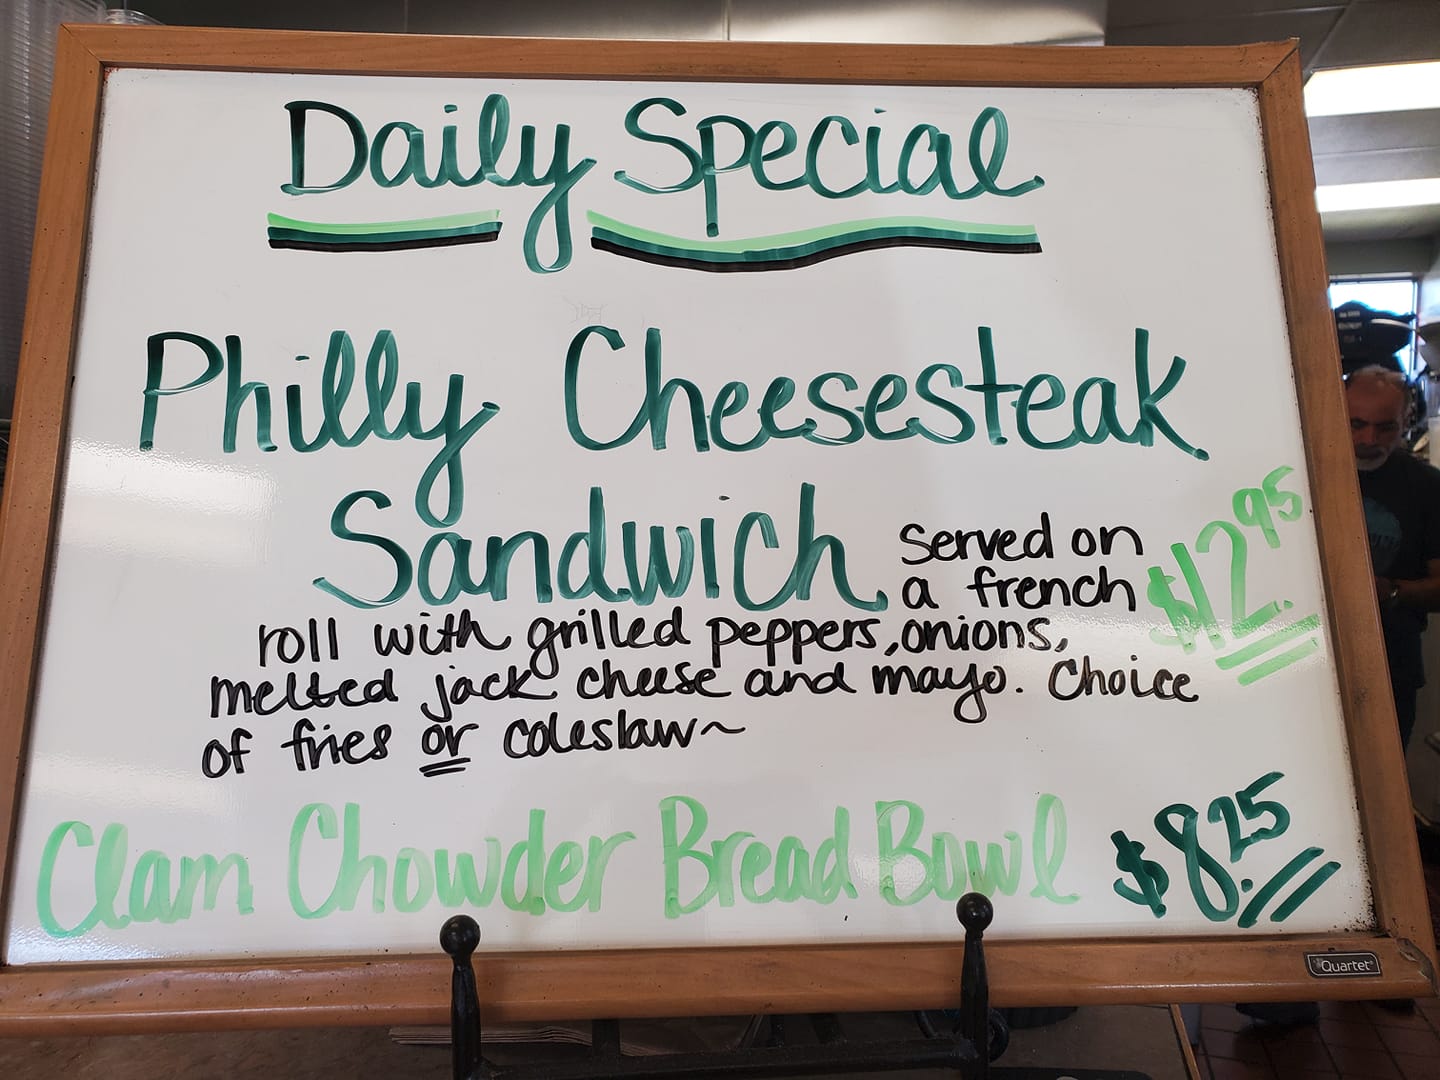 Daily Special
Philly Cheesesteak
Sandwich
Served on
a french
$12.95
roll with grilled peppers, onions,
melted jack cheese and mayo. Choice
of fries or coleslaw~
Clam Chowder Bread Bowl $8.25
Quartet